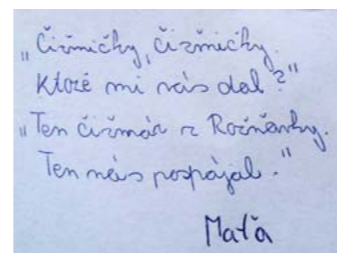 „Čižmičky, čižmičky.
Ktože mi vás dal?"
„Ten čižmár z Rožňavky.
Ten nás pospájal."
Maťa